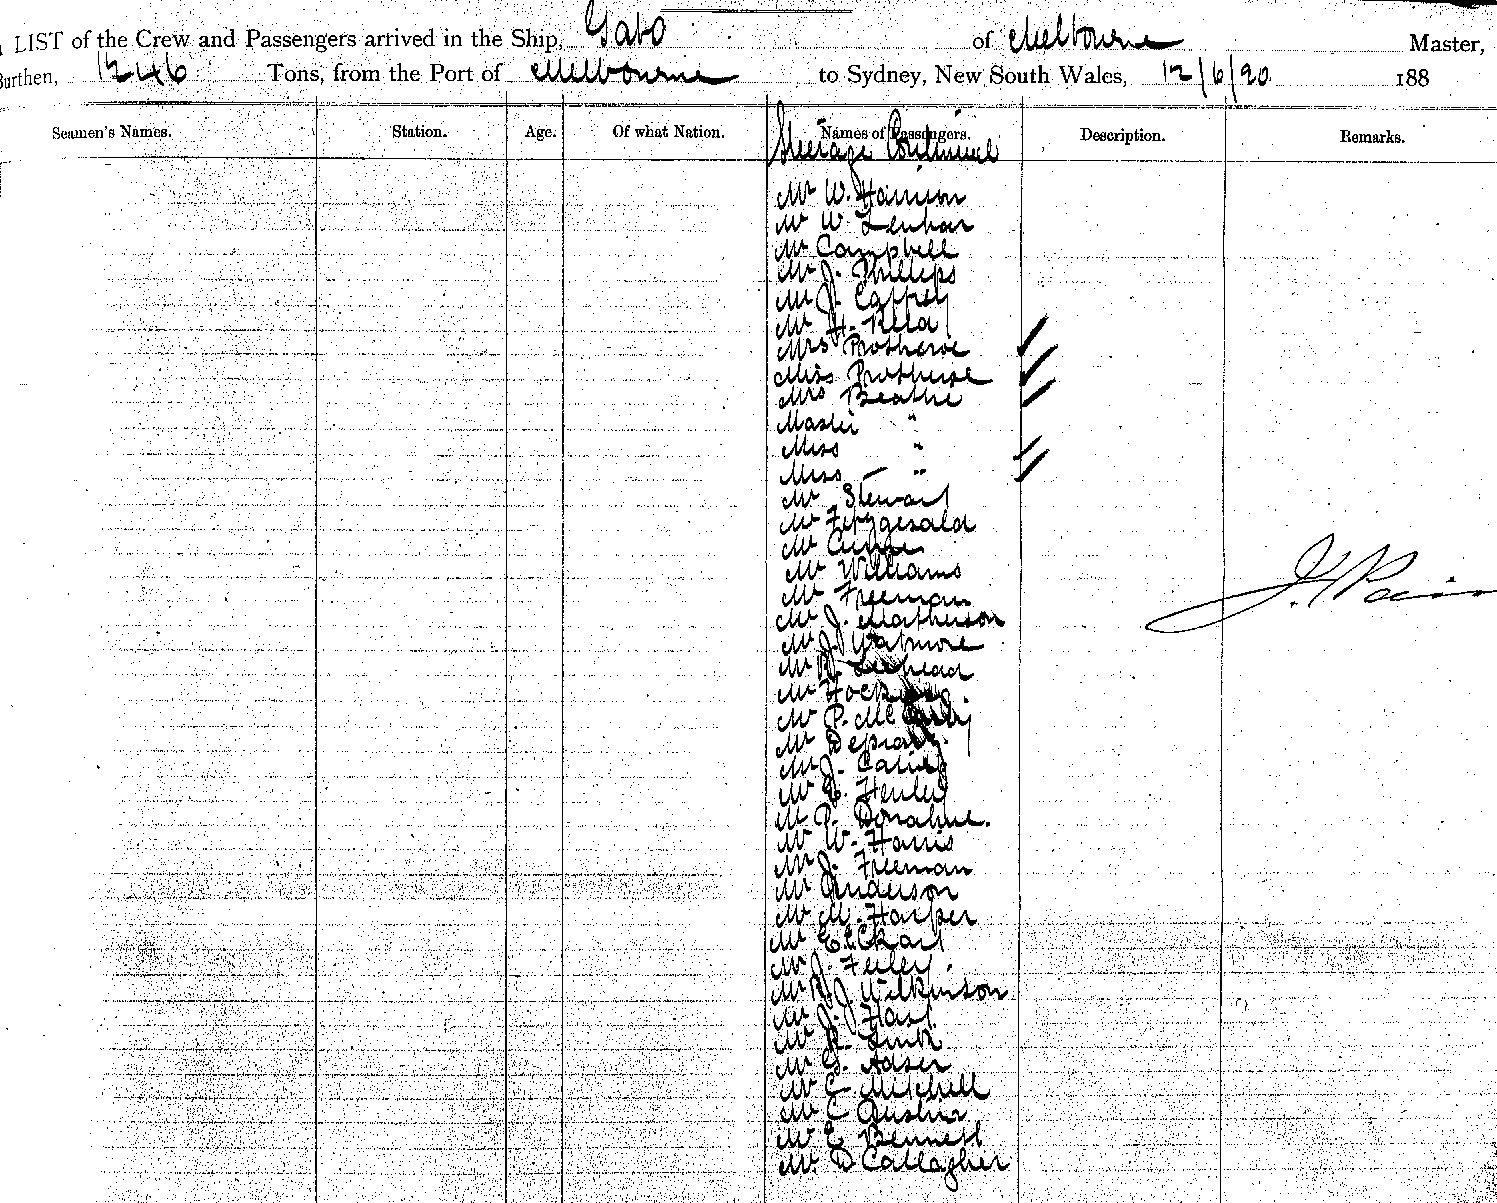 LIST of the Crew and Passengers arrived in the Ship, Gabo of Melbourne Master,
Burthen, 1246 Tons, from the Port of Melbourne to Sydney, New South Wales, 12/6/90 188
Seamen's Names. Station. Age. Of what Nation. Names of Passengers. Description. Remarks.
Steerage Continued
Mr W. Harrison
Mr W. Lenham
Mr Campbell
Mr J. Phillips
Mr J. Caffrey
Mr H. Reid
Mrs Protheroe
Miss Protheroe
Mrs Beathe
Master "
Miss "
Miss — "
Mr Stewart
Mr Fitzgerald
Mr
Mr Williams
Mr Freeman
Mr J. Matherson
Mr J. Watmore
Mr Leehead
Mr
Mr P. McCarthy
Mr
Mr J.
Mr Henley
Mr P. Donahue.
Mr W. Harris
Mr J. Freeman
Mr Anderson
Mr M. Harper
Mr Eckhart
Mr J. Feeley.
Mr J Wilkinson
Mr J. Hart
Mr R.
Mr G. Adser
Mr C Mitchell
Mr C Austin
Mr E Bennett
Mr D Callagher